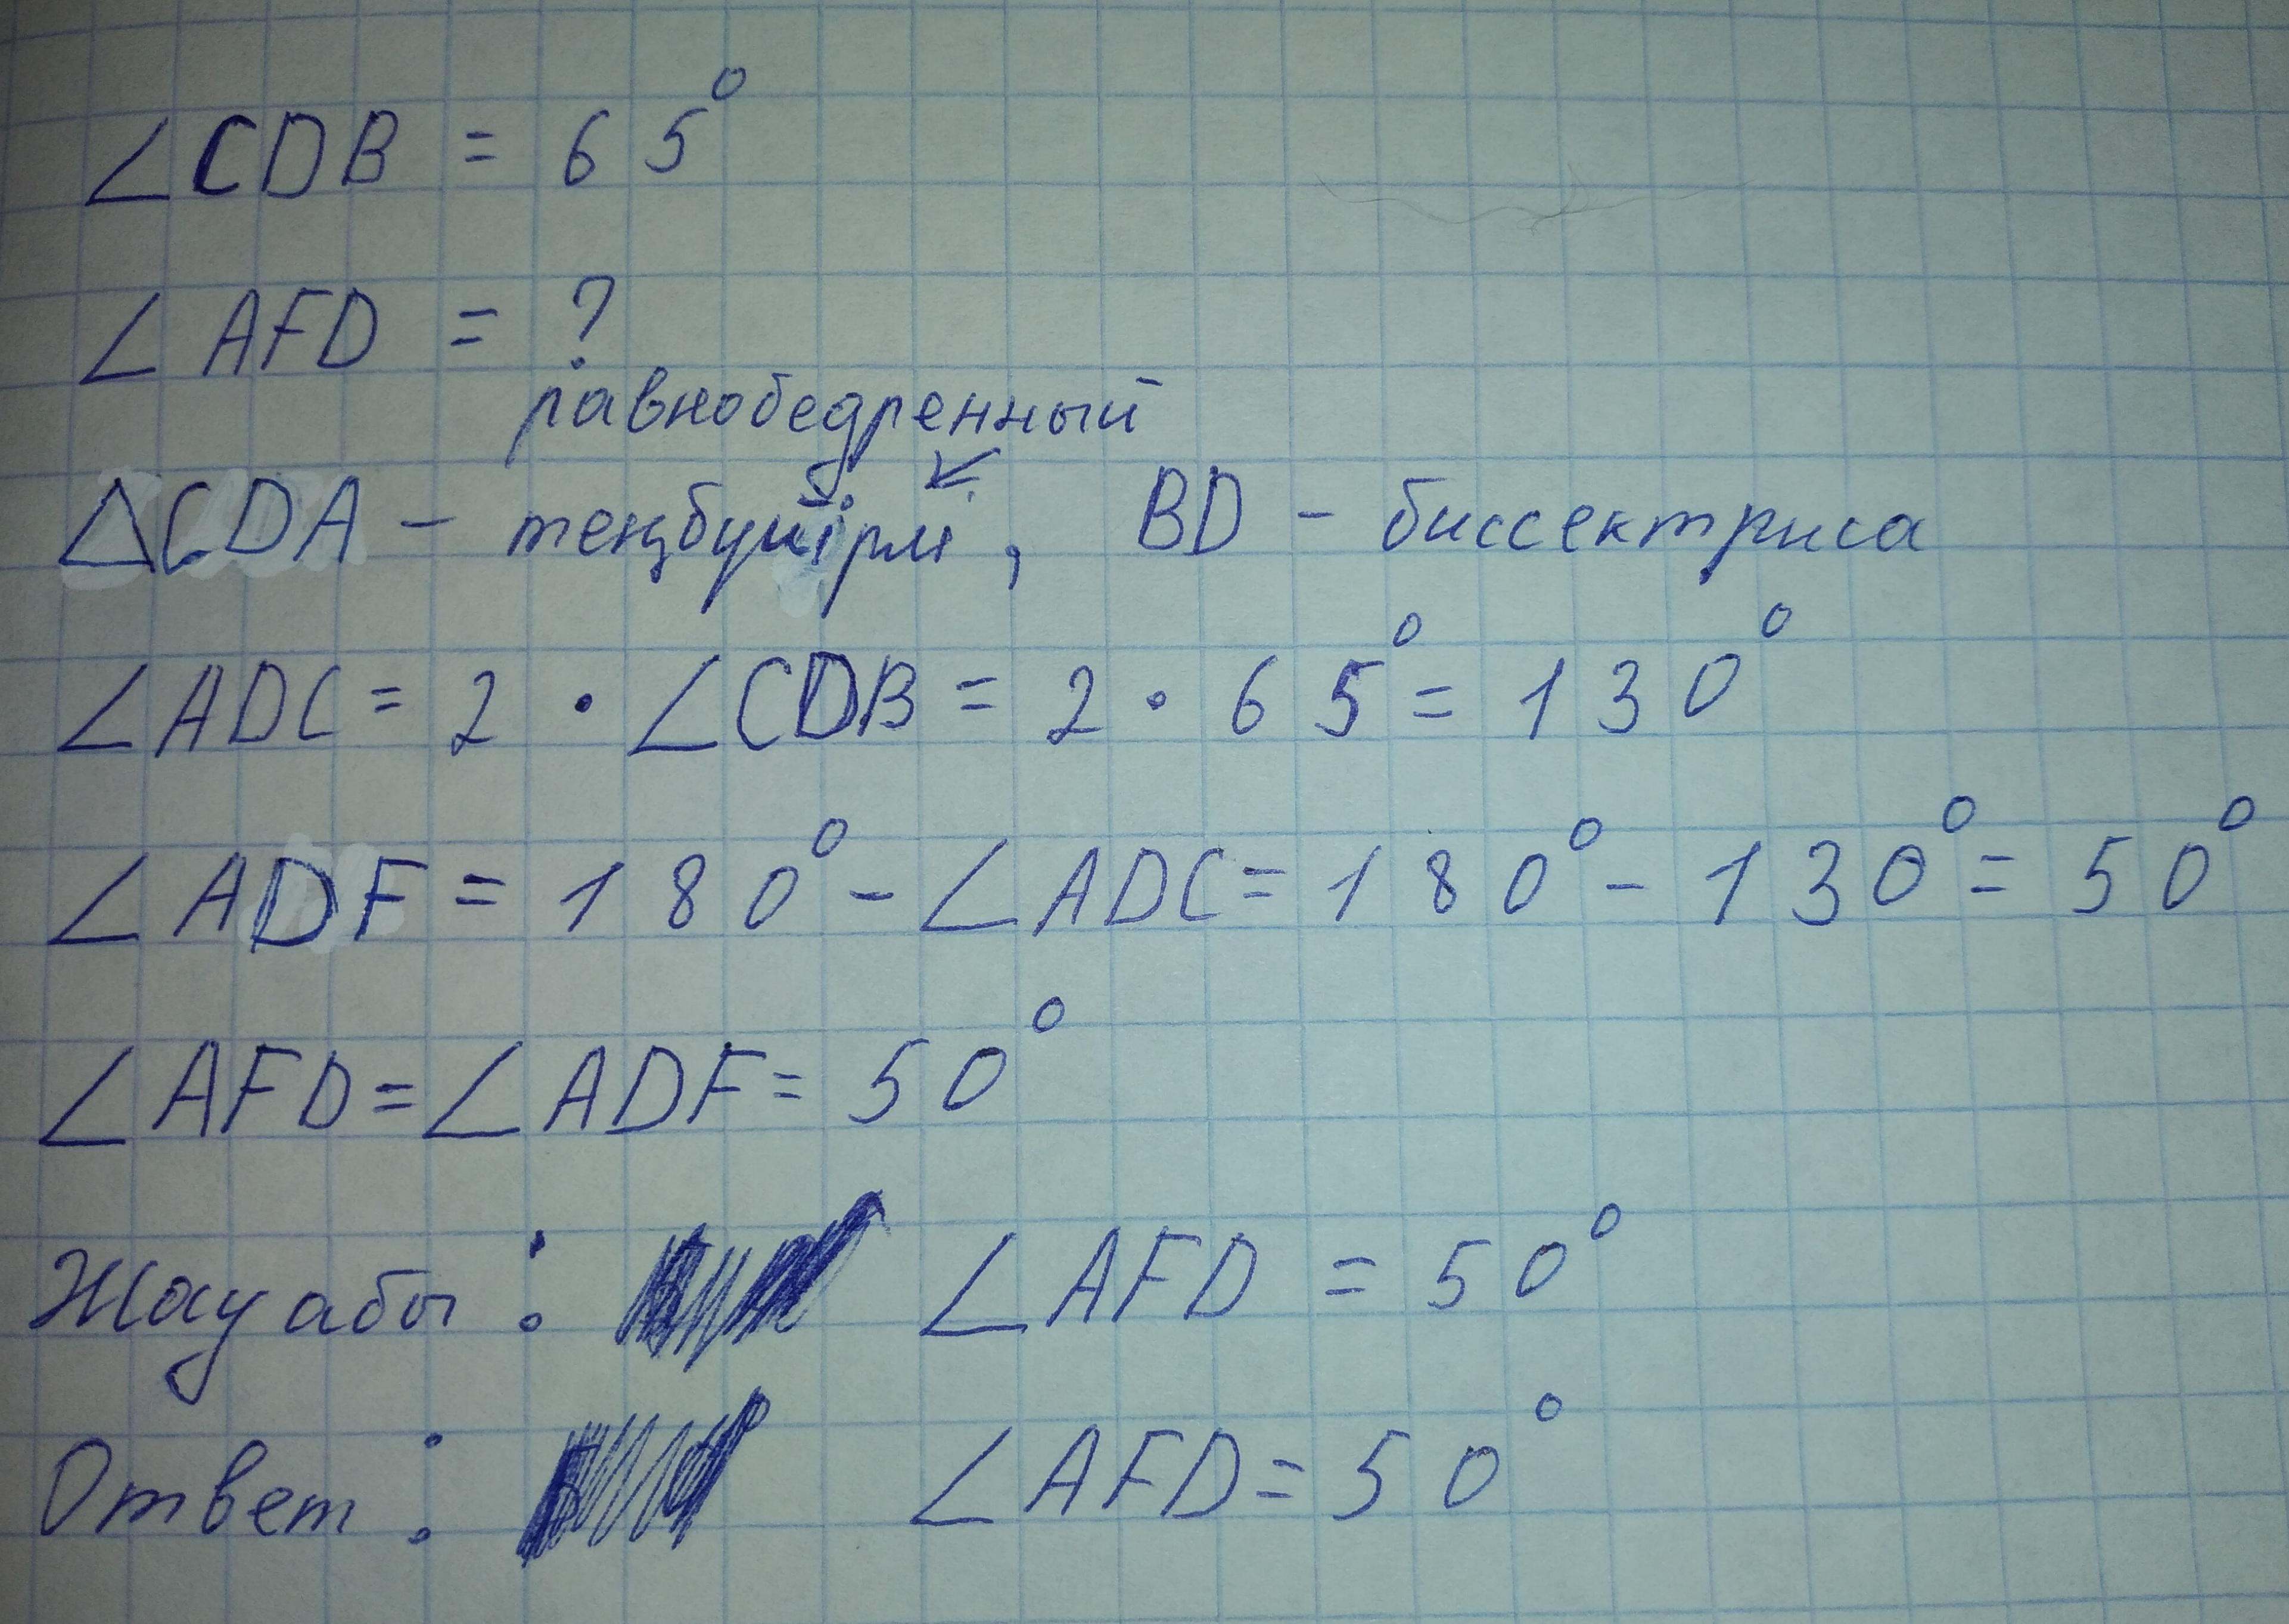 ∠CDB = 65°
∠AFD = ?
равнобедренный
△CDA – теңбүйірлі, BD – биссектриса
∠ADC = 2 · ∠CDB = 2 · 65° = 130°
∠ADF = 180° – ∠ADC = 180° – 130° = 50°
∠AFD = ∠ADF = 50°
Жауабы: ∠AFD = 50°
Ответ: ∠AFD = 50°